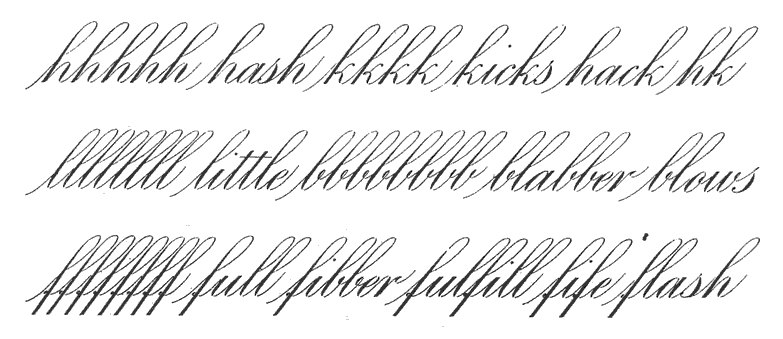 hhhhh hash kkkk kicks hack hk
lllllll little bbbbbbbb blabber blows
fffffff full fibber fulfill fife flash